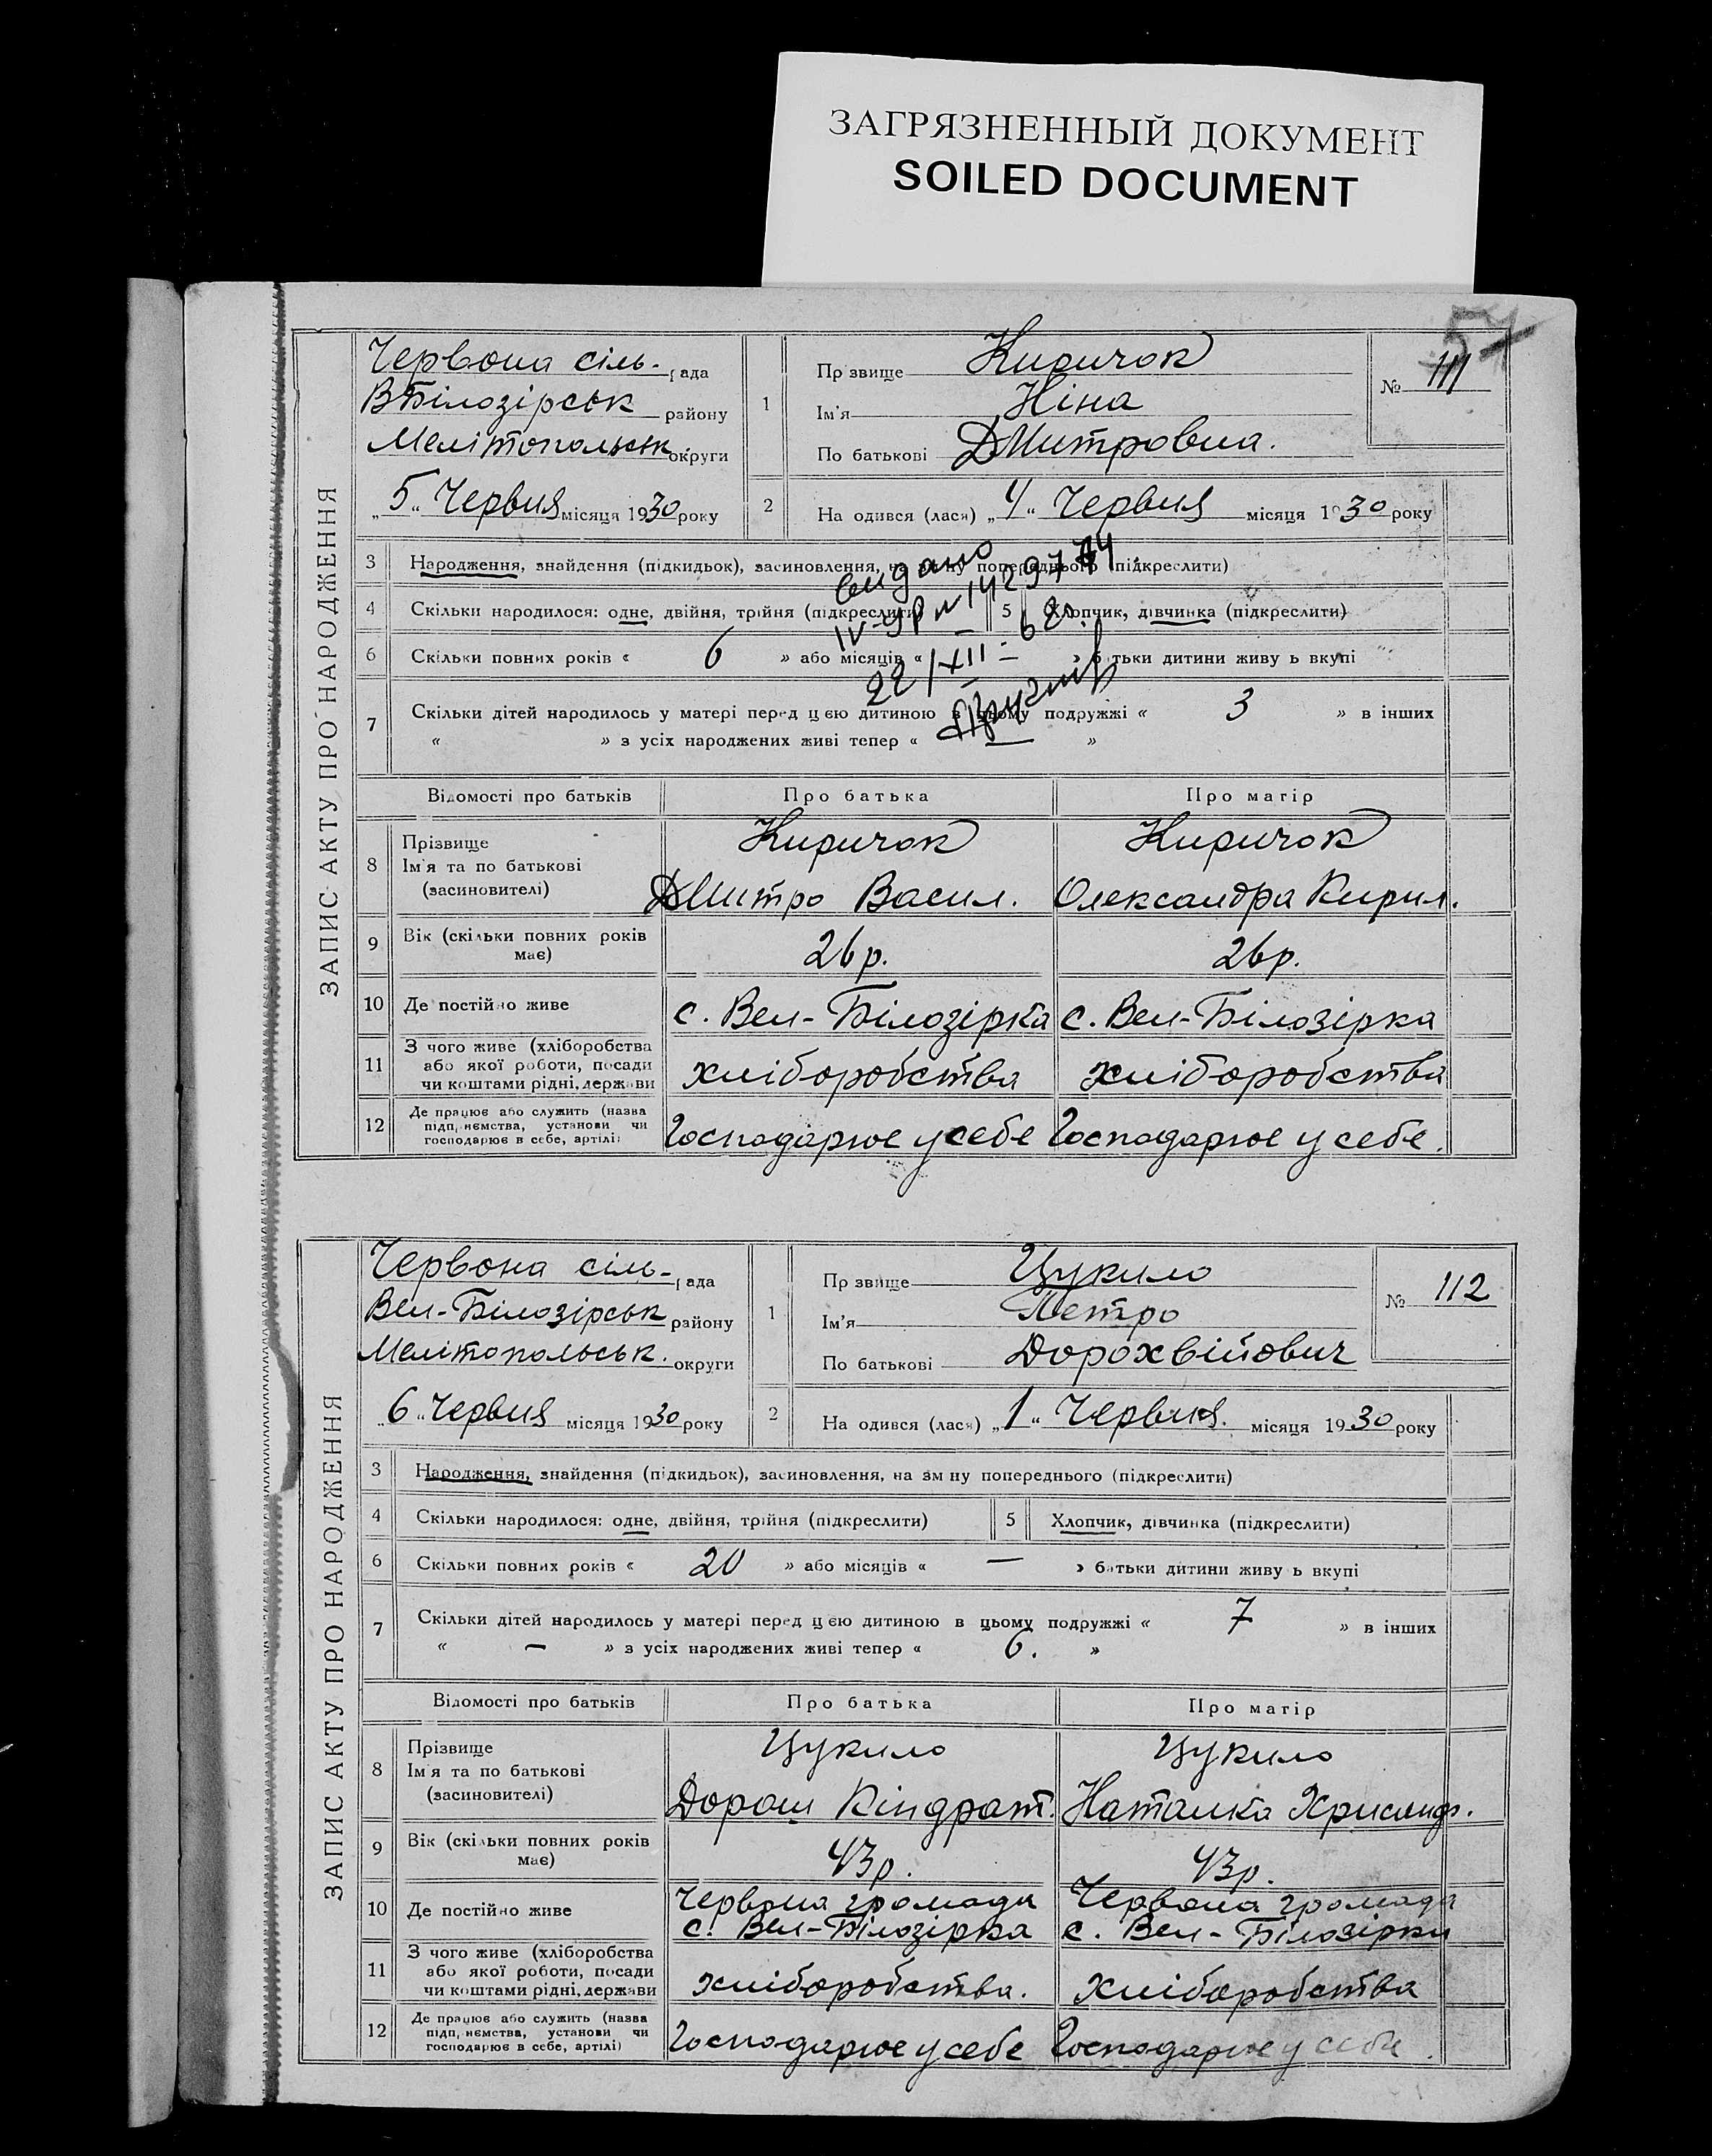 ЗАГРЯЗНЕННЫЙ ДОКУМЕНТ
SOILED DOCUMENT
57
ЗАПИС АКТУ ПРО НАРОДЖЕННЯ
Червона сіль- рада
ВБілозірськ району
Мелітопольськ. округи
„5" Червня місяця 1930 року
1
Пр звище Киричок
Ім'я Ніна
По батькові Дмитровна.
№ 111
2 На одився (лася) „4" Червня місяця 1930 року
3 Народження, знайдення (підкидьок), засиновлення, на зм ну попереднього (підкреслити)
4 Скільки народилося: одне, двійня, трійня (підкреслити) 5 Хлопчик, дівчинка (підкреслити)
6 Скільки повних років « 6 » або місяців « — » батьки дитини живу ь вкупі
7 Скільки дітей народилось у матері перед цією дитиною в цьому подружжі « 3 » в інших
« » з усіх народжених живі тепер « — »
видано
IV-УР № 1429774
22/XII - 68
Відомості про батьків Про батька Про матір
8 Прізвище Ім'я та по батькові (засиновителі)
Киричок Киричок
Дмитро Васил. Олександра Кирил.
9 Вік (скільки повних років має) 26р. 26р.
10 Де постійно живе с. Вел-Білозірка с. Вел-Білозірка
11 З чого живе (хліборобства або якої роботи, посади чи коштами рідні, держави хліборобства хліборобства
12 Де працює або служить (назва підп, иємства, установи чи господарює в себе, артілі) Господарює у себе Господарює у себе.
ЗАПИС АКТУ ПРО НАРОДЖЕННЯ
Червона сіль- рада
Вел-Білозірськ району
Мелітопольськ. округи
„6" Червня місяця 1930 року
1
Пр звище Цукило
Ім'я Петро
По батькові Дорохвійович
№ 112
2 На одився (лася) „1" Червня. місяця 1930 року
3 Народження, знайдення (підкидьок), засиновлення, на зм ну попереднього (підкреслити)
4 Скільки народилося: одне, двійня, трійня (підкреслити) 5 Хлопчик, дівчинка (підкреслити)
6 Скільки повних років « 20 » або місяців « — » батьки дитини живу ь вкупі
7 Скільки дітей народилось у матері перед цією дитиною в цьому подружжі « 7 » в інших
« — » з усіх народжених живі тепер « 6. »
Відомості про батьків Про батька Про матір
8 Прізвище Ім'я та по батькові (засиновителі)
Цукило Цукило
Дорош Кіндрат. Наталка
9 Вік (скільки повних років має) 43р. 43р.
10 Де постійно живе Червона громада Червона громада
с. Вел-Білозірка с. Вел-Білозірки
11 З чого живе (хліборобства або якої роботи, посади чи коштами рідні, держави хліборобства. хліборобства
12 Де працює або служить (назва підп, иємства, установи чи господарює в себе, артілі) Господарює у себе Господарює у себе.